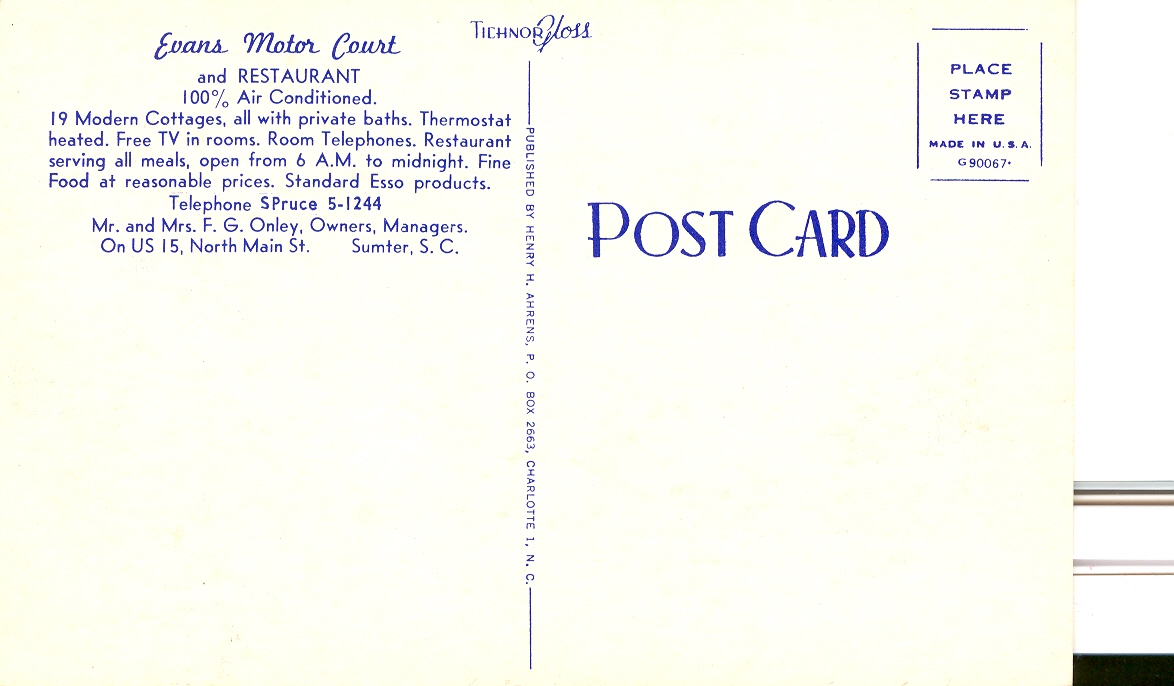 TICHNOR Gloss
Evans Motor Court
and RESTAURANT
100% Air Conditioned.
19 Modern Cottages, all with private baths. Thermostat
heated. Free TV in rooms. Room Telephones. Restaurant
serving all meals, open from 6 A.M. to midnight. Fine
Food at reasonable prices. Standard Esso products.
Telephone SPruce 5-1244
Mr. and Mrs. F. G. Onley, Owners, Managers.
On US 15, North Main St. Sumter, S. C.
PUBLISHED BY HENRY H. AHRENS, P. O. BOX 2663, CHARLOTTE 1, N. C.
POST CARD
PLACE
STAMP
HERE
MADE IN U. S. A.
G90067•